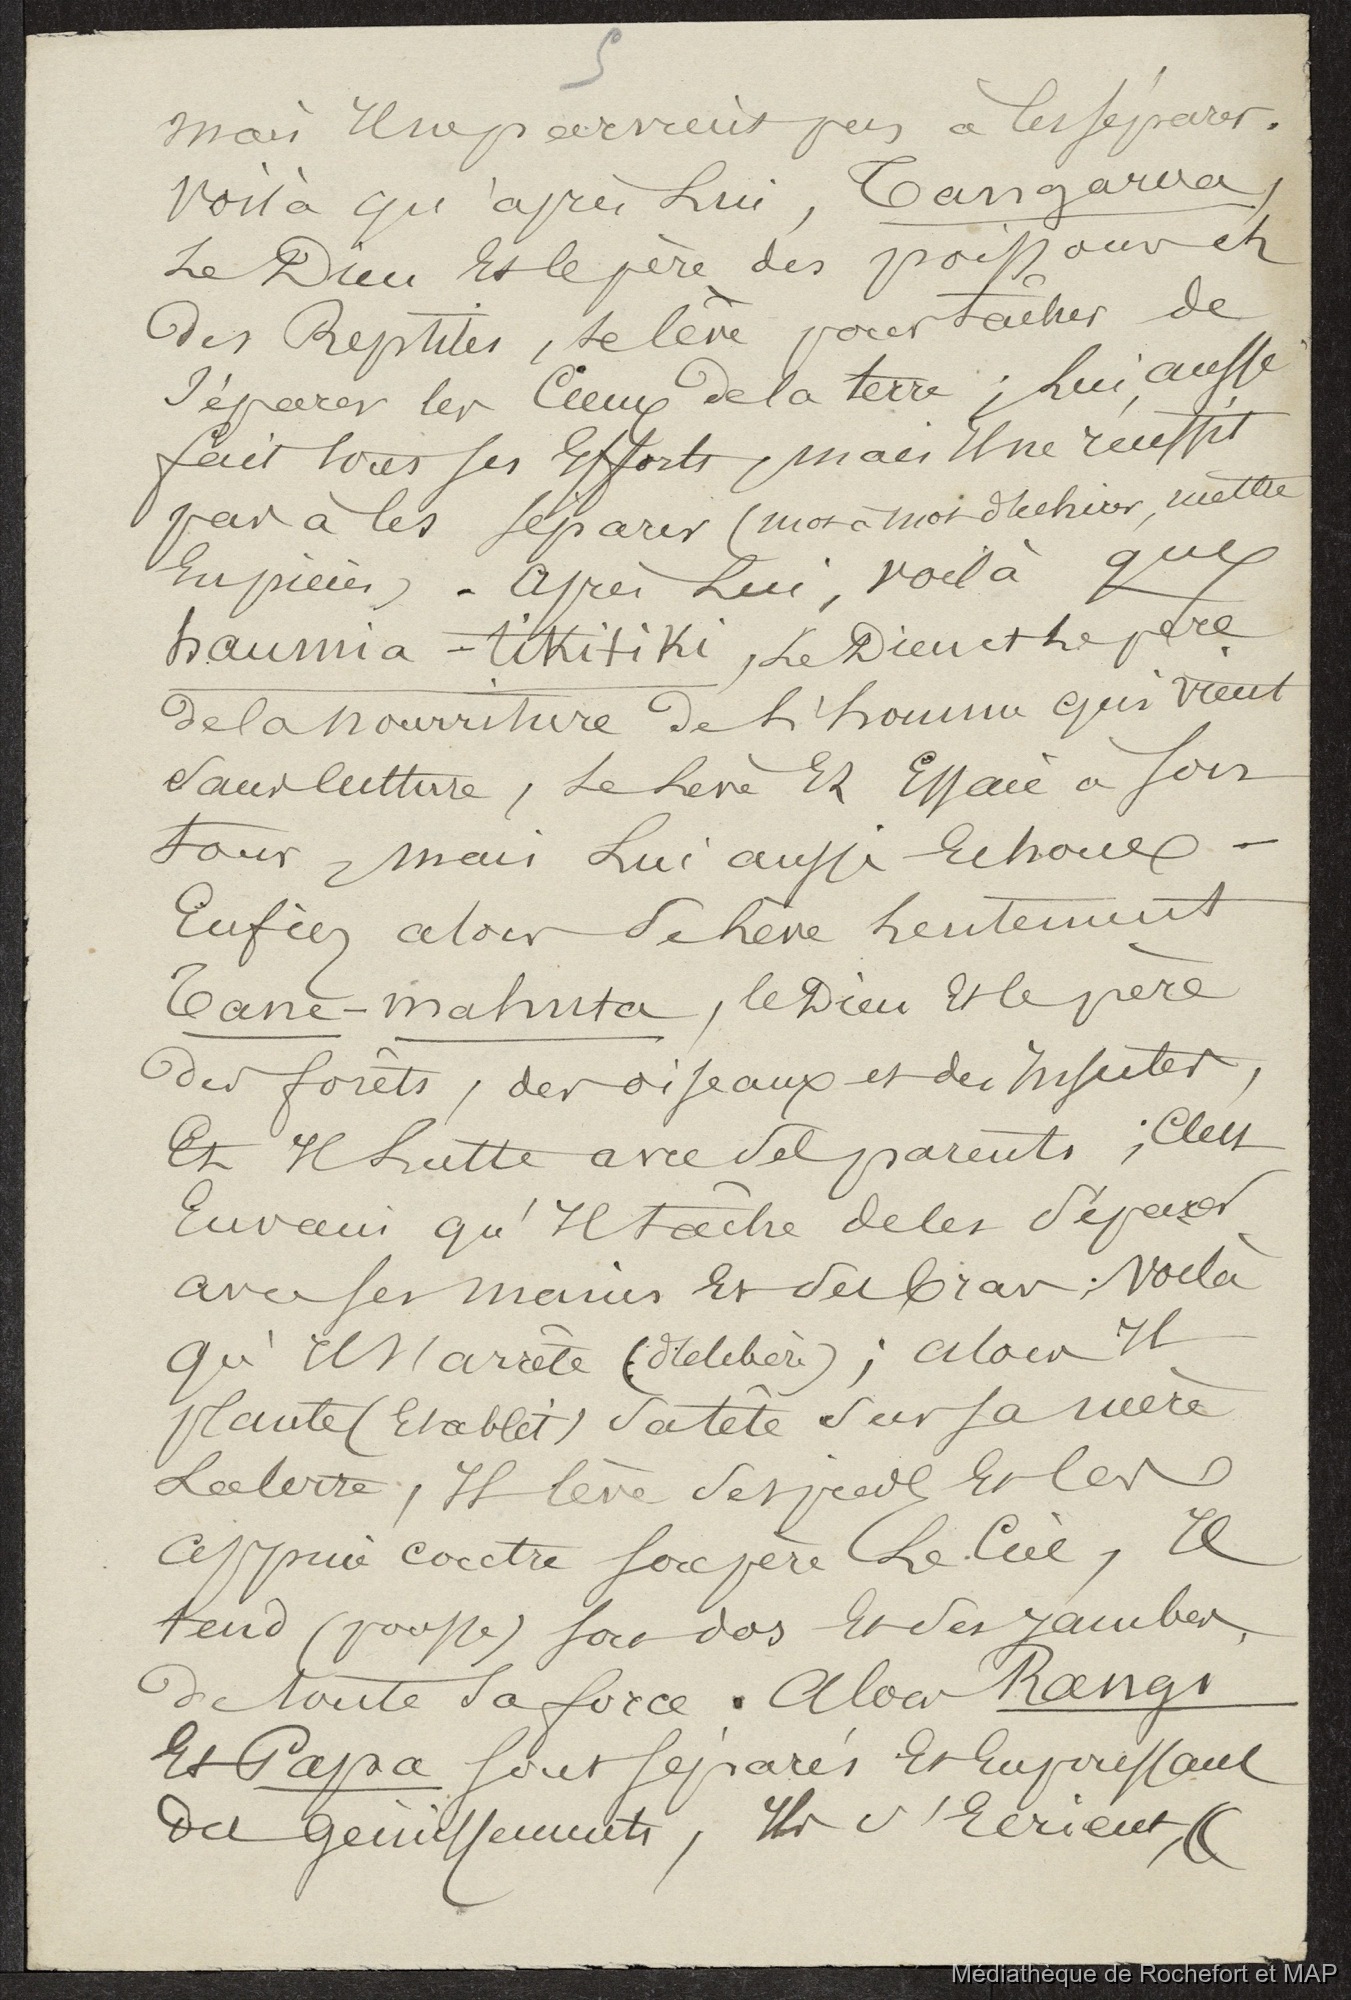 5
mais Il ne parvient pas à les séparer.
Voilà qu'après Lui, Tangaroa,
Le Dieu Et le père des poissons et
des Reptiles, se lève pour tâcher de
séparer les Cieux de la terre ; Lui aussi
fait tous ses Efforts, mais Il ne réussit
pas à les séparer (mot à mot déchirer, mettre
En pièces). Après Lui, voilà que
haumia-tikitiki, Le Dieu et Le père
de la nourriture de L'homme qui vient
sans culture, se Lève Et Essaie à son
tour, mais Lui aussi Echoue -
Enfin alors se Lève Lentement
Tane-mahuta, le Dieu Et le père
des forêts, des oiseaux et des Insectes,
Et Il Lutte avec ses parents ; C'est
En vain qu'Il tâche de les séparer
avec ses mains Et ses bras. Voilà
qu'Il s'arrête (délibère) ; alors Il
plante (Etablit) sa tête sur sa mère
La terre, Il lève ses pieds Et les
appuie contre son père Le Ciel, Il
tend (pousse) son dos Et ses jambes,
de toute sa force. Alors Rangi
Et Papa sont séparés Et En poussant
des gémissements, Ils s'Ecrient, (
Médiathèque de Rochefort et MAP